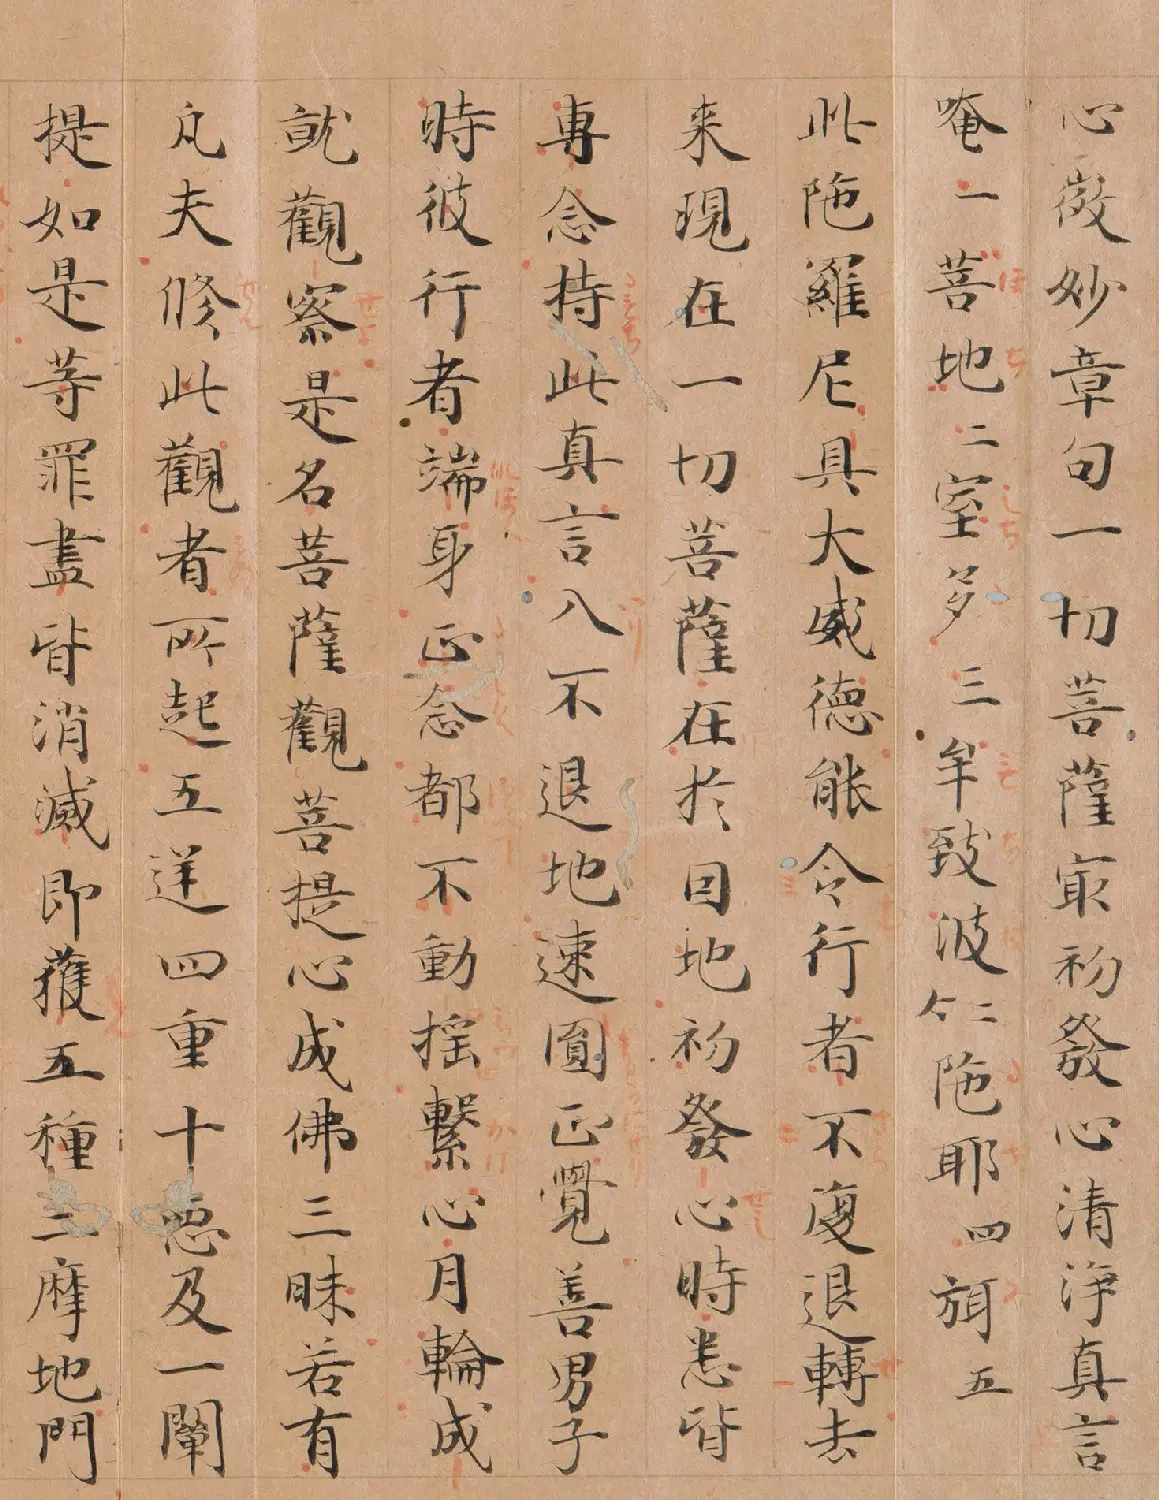 心微妙章句一切菩薩㝡初發心清淨真言
唵一菩地二室多三牟致波仁二陁耶四弭五
此陁羅尼具大威德能令行者不復退轉去
来現在一切菩薩在於因地初發心時悉皆
専念持此真言入不退地速圓正覺善男子
時彼行者端身正念都不動揺繫心月輪成
就觀察是名菩薩觀菩提心成佛三昧若有
凡夫修此觀者所起五逆四重十悪及一闡
提如是等罪盡皆消滅即獲五種三摩地門